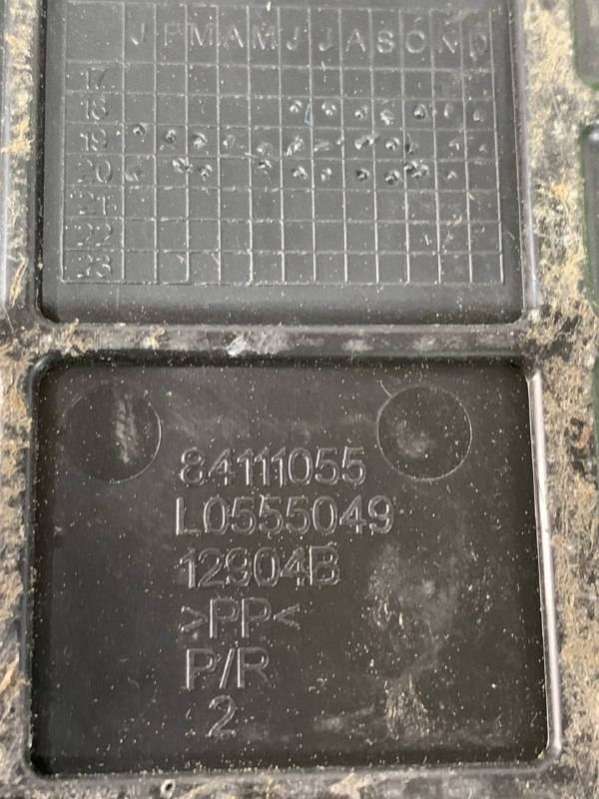 J F M A M J J A S O N D
17
18
19
20
21
22
23
84111055
L0555049
12904B
>PP<
P/R
2